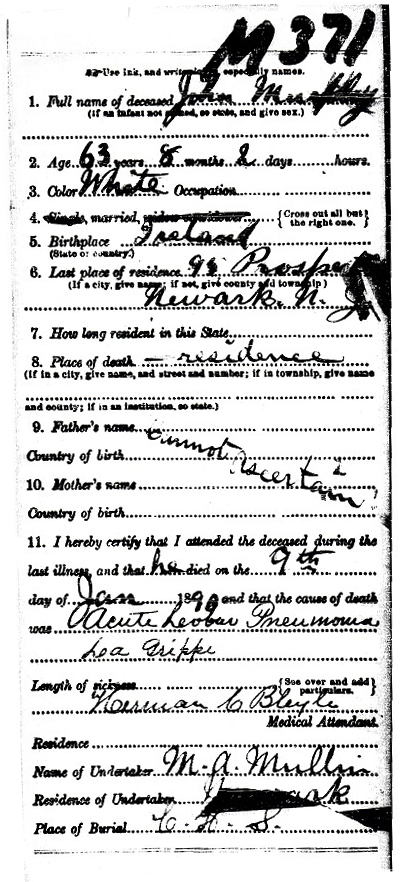 M 371
Use ink, and write especially names.
1. Full name of deceased John Murphy
(If an infant not named, so state, and give sex.)
2. Age 63 years 8 months 2 days hours.
3. Color White Occupation
4. Single, married, widow or widower {Cross out all but the right one.}
5. Birthplace Ireland
(State or country.)
6. Last place of residence 98 Prospect
(If a city, give name; if not, give county and township)
Newark. N. J.
7. How long resident in this State
8. Place of death — residence
(If in a city, give name, and street and number; if in township, give name
and county; if in an institution, so state.)
9. Father's name Cannot
Country of birth Ascertain
10. Mother's name
Country of birth
11. I hereby certify that I attended the deceased during the
last illness, and that he died on the 9th
day of Jan 1890 and that the cause of death
was Acute Lobar Pneumonia
La Grippe
Length of sickness {See over and add particulars.}
Herman C Bleyle
Medical Attendant.
Residence
Name of Undertaker M. A. Mullin
Residence of Undertaker Newark
Place of Burial C. H. S.